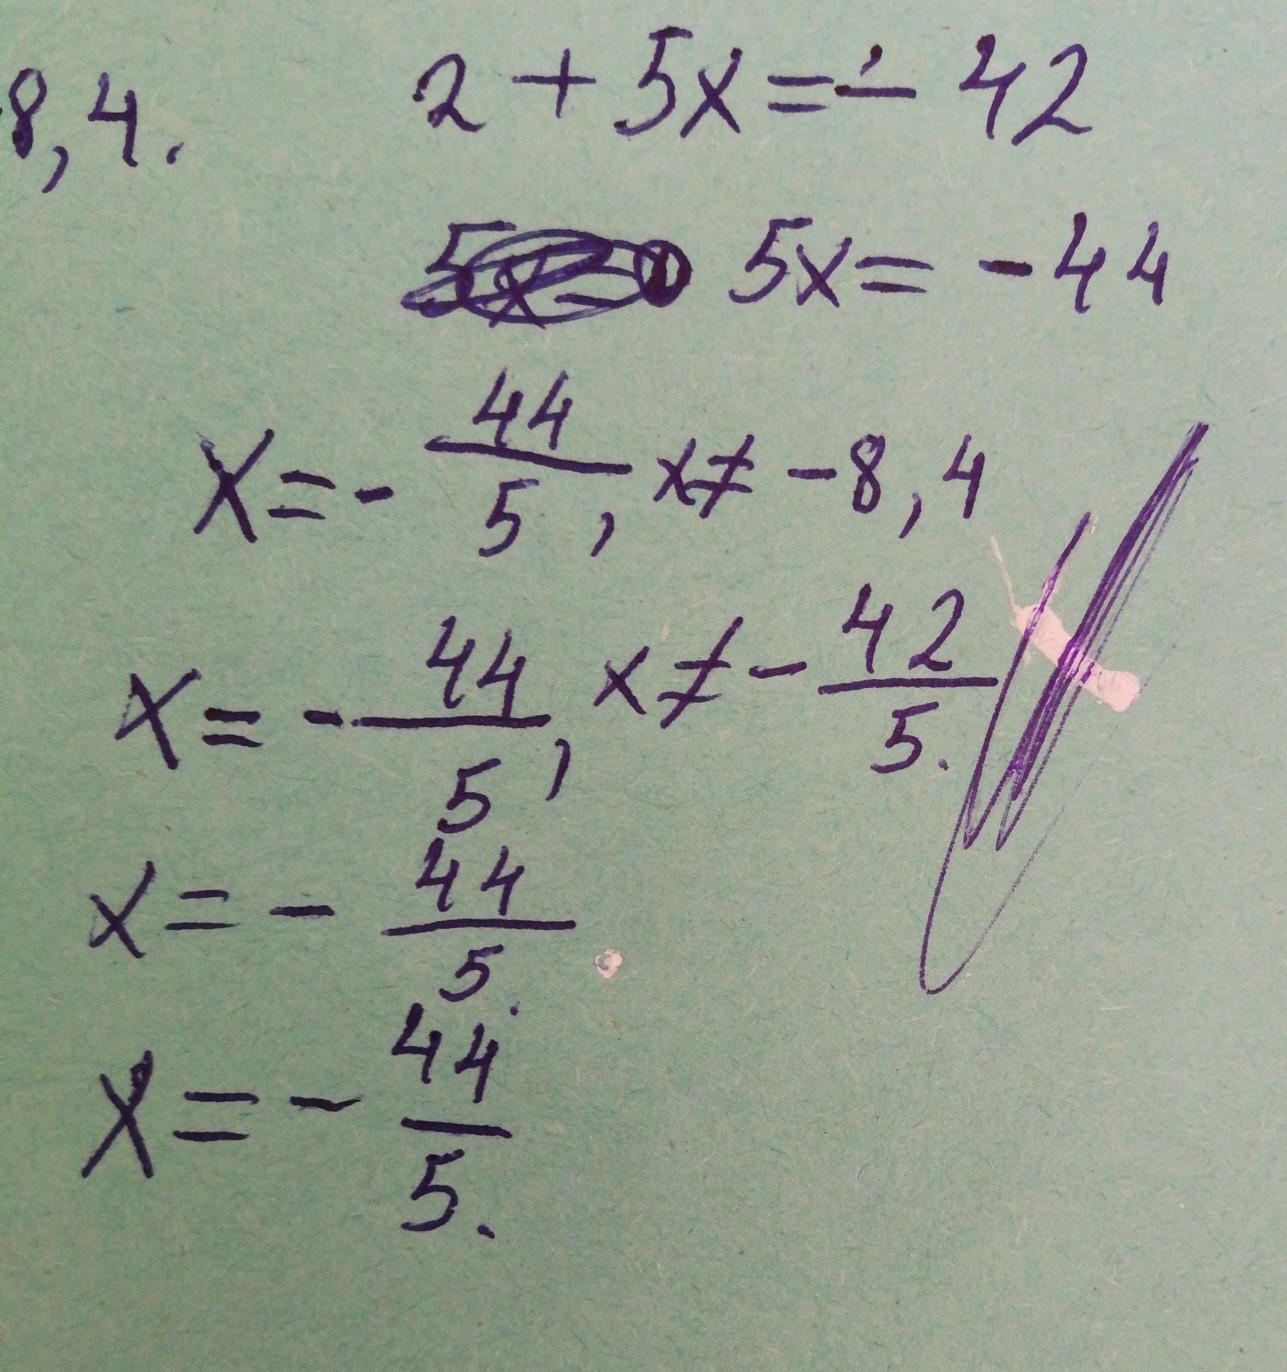 8,4. 2 + 5x = - 42
5x = -44
x = - 44/5, x ≠ -8,4
x = - 44/5, x ≠ - 42/5.
x = - 44/5.
x = - 44/5.